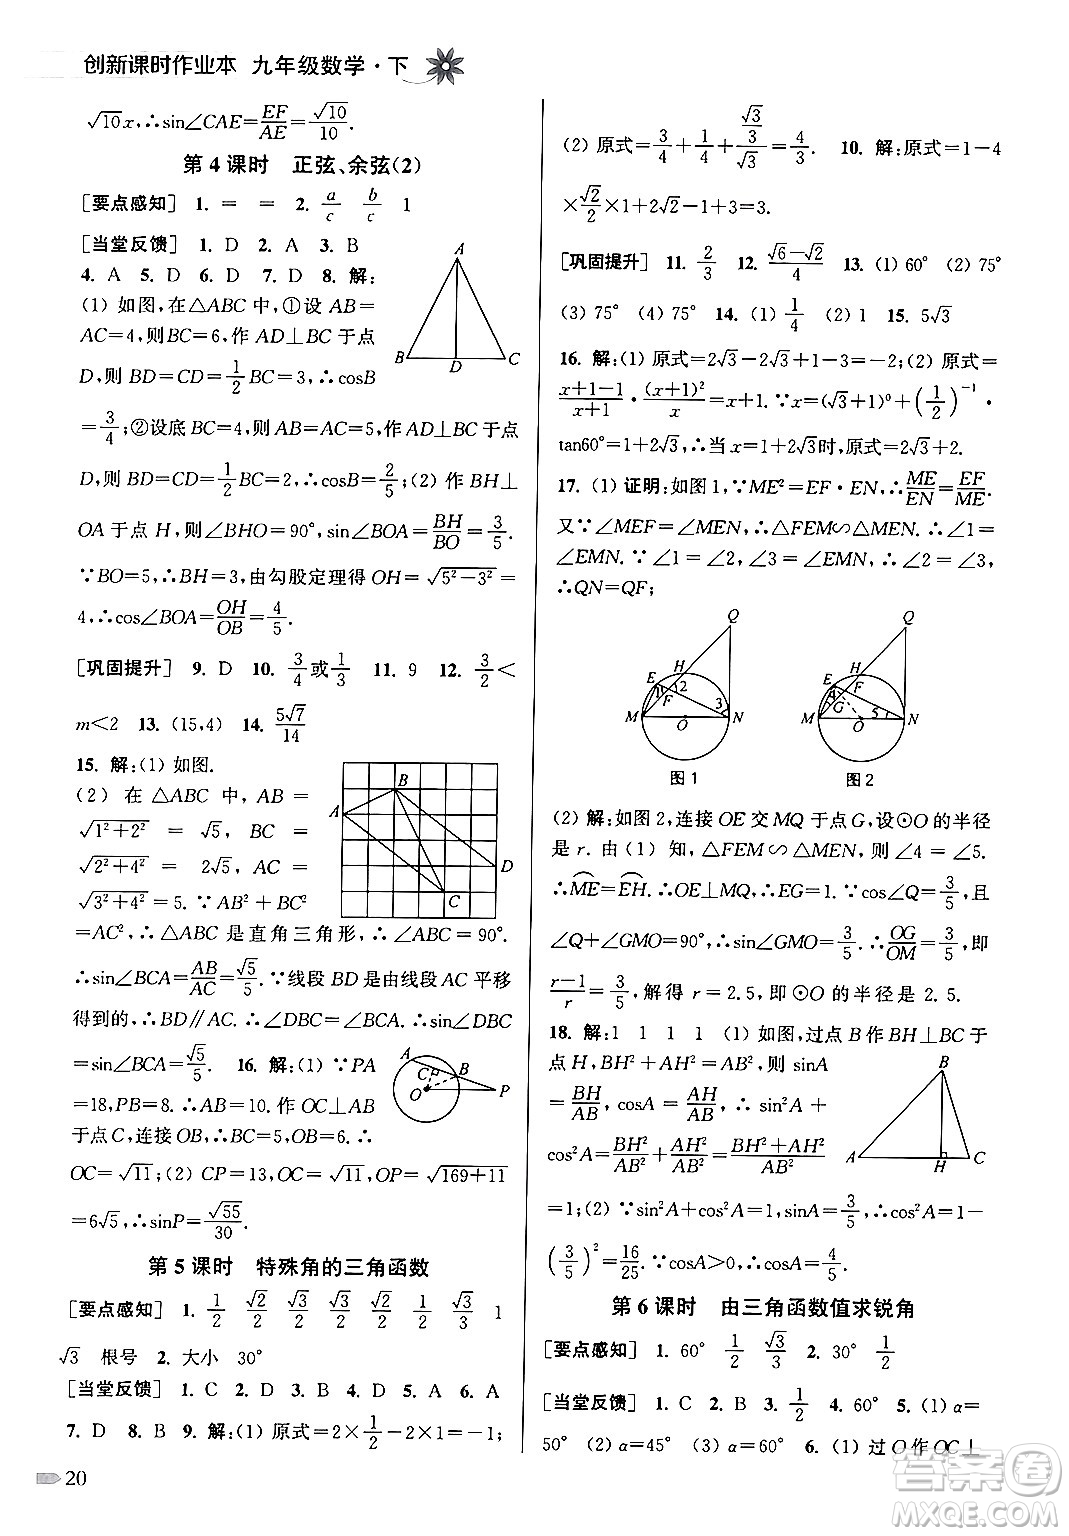 创新课时作业本 九年级数学·下
√10x,∴sin∠CAE=EF/AE=√10/10.
第4课时 正弦、余弦(2)
[要点感知] 1. = = 2. a/c b/c 1
[当堂反馈] 1. D 2. A 3. B
4. A 5. D 6. D 7. D 8. 解:
(1) 如图,在△ABC中,①设AB=
AC=4,则BC=6,作AD⊥BC于点
D,则BD=CD=1/2BC=3,∴cosB
=3/4;②设底BC=4,则AB=AC=5,作AD⊥BC于点
D,则BD=CD=1/2BC=2,∴cosB=2/5;(2) 作BH⊥
OA于点H,则∠BHO=90°,∴cos∠BOA=BH/BO=3/5.
∵BO=5,∴BH=3,由勾股定理得OH=√5²-3²=
4,∴cos∠BOA=OH/OB=4/5.
[巩固提升] 9. D 10. 3/4或1/3 11. 9 12. 3/2<
m<2 13. (15,4) 14. 5√7/14
15. 解:(1) 如图.
(2) 在△ABC中,AB=
√1²+2² = √5, BC =
√2²+4² = 2√5, AC =
√3²+4² = 5. ∵AB²+BC²
=AC²,∴△ABC是直角三角形,∴∠ABC=90°.
∴sin∠BCA=AB/AC=√5/5.∵线段BD是由线段AC平移
得到的,∴BD∥AC,∴∠DBC=∠BCA,∴sin∠DBC
=sin∠BCA=√5/5. 16. 解:(1) ∵PA
=18,PB=8.∴AB=10.作OC⊥AB
于点C,连接OB,BC=5,OB=6.∴
OC=√11;(2) CP=13,OC=√11,OP=√169+11
=6√5,∴sinP=√55/30.
A B C D
A B C D
A C B O P
第5课时 特殊角的三角函数
[要点感知] 1. 1/2 √2/2 √3/2 √3/2 √2/2 1/2 √3/3 1
√3 根号 2. 大小 30°
[当堂反馈] 1. C 2. D 3. B 4. D 5. A 6. A
7. D 8. B 9. 解:(1) 原式=2×1/2-2=-1;
20
(2) 原式=3/4+1/4+√3/3/√3=4/3. 10. 解:原式=1-4
×√2/2×1+2√2-1+3=3.
[巩固提升] 11. 2/3 12. √6-√2/4 13. (1) 60° (2) 75°
(3) 75° (4) 75° 14. (1) 1/4 (2) 1 15. 5√3
16. 解:(1) 原式=2√3-2√3+1-3=-2;(2) 原式=
x+1-1/x+1·(x+1)²/x=x+1.∵x=(√3+1)⁰+(1/2)⁻¹·
tan60°=1+2√3,∴当x=1+2√3时,原式=2√3+2.
17. (1) 证明:如图1,∵ME²=EF·EN,∴ME/EN=EF/ME.
又∵∠MEF=∠MEN,∴△FEM∽△MEN.∴∠1=
∠EMN.∵∠1=∠2,∠3=∠EMN,∴∠2=∠3.
∴QN=QF;
Q H E F 1 2 3 M O N
图1
Q H E F 4 G 5 M O N
图2
(2) 解:如图2,连接OE交MQ于点G,设⊙O的半径
是r.由(1)知,△FEM∽△MEN,则∠4=∠5.
∴ME=EH.∴OE⊥MQ,∴EG=1.∵cos∠Q=3/5,且
∠Q+∠GMO=90°,∴sin∠GMO=3/5.∴OG/OM=3/5,即
r-1/r=3/5,解得r=2.5,即⊙O的半径是2.5.
18. 解:1 1 1 1 (1) 如图,过点B作BH⊥BC于
点H,BH²+AH²=AB²,则sinA
=BH/AB, cosA=AH/AB, ∴ sin²A+
cos²A=BH²/AB²+AH²/AB²=BH²+AH²/AB²
=1;(2) ∵sin²A+cos²A=1,sinA=3/5,∴cos²A=1-
(3/5)²=16/25.∵cosA>0,∴cosA=4/5.
B A H C
第6课时 由三角函数值求锐角
[要点感知] 1. 60° 1/2 √3/3 2. 30° 1/2
[当堂反馈] 1. C 2. B 3. 1/2 4. 60° 5. (1) α=
50° (2) α=45° (3) α=60° 6. (1) 过O作OC⊥
答案圈
MXQE.COM